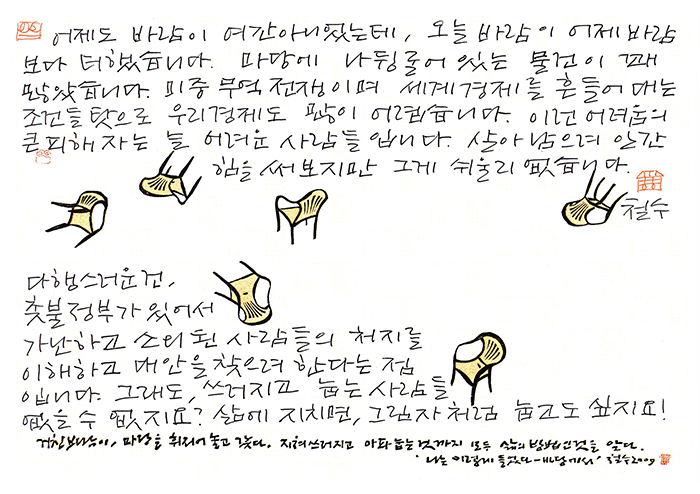 어제도 바람이 여간아니었는데, 오늘 바람이 어제 바람
보다 더했습니다. 마당에 나뒹굴어 있는 물건이 꽤
많았습니다. 미중 무역전쟁이며 세계경제를 흔들어 대는
조건들 탓으로 우리경제도 많이 어렵습니다. 이런 어려움의
큰 피해자는 늘 어려운 사람들입니다. 살아남으려 안간
힘을 써보지만 그게 쉬울리 없습니다.
철수
다행스러운건,
촛불정부가 있어서
가난하고 소외된 사람들의 처지를
이해하고 대안을 찾으려 한다는 점
입니다. 그래도, 쓰러지고 눕는 사람들
없을 수 없지요? 삶에 지치면, 그림자처럼 눕고도 싶지요!
거친 바람이, 마당을 휘저어 놓고 갔다. 지쳐 쓰러지고 아파 눕는 것까지 모두 삶의 방법인 것을 안다.
'나는 이렇게 들었다-마당에서' 철수2019